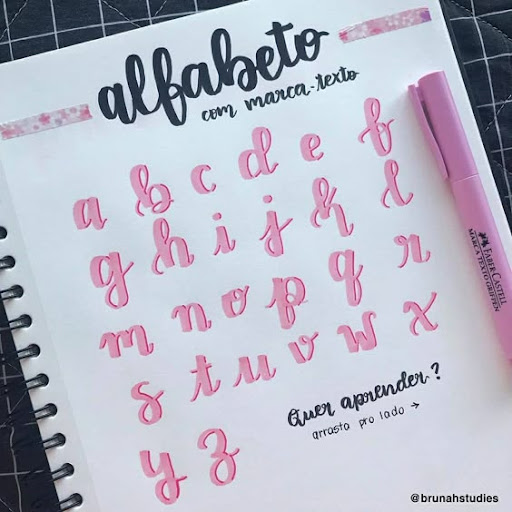 alfabeto
com marca-texto
a b c d e f
g h i j k l
m n o p q r
s t u v w x
y z
Quer aprender?
arrasta pro lado →
FABER-CASTELL
MARCA TEXTO
@brunahstudies